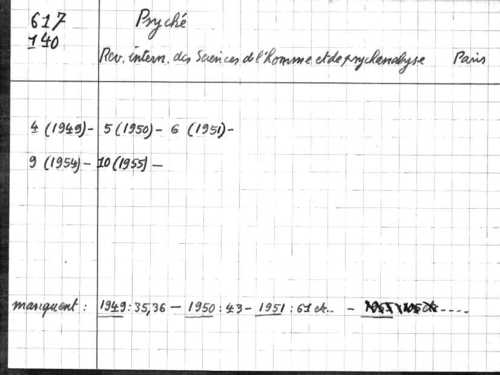 617 Psyché
140
Rev. intern. des Sciences de l'homme et de psychanalyse Paris
4 (1949) - 5 (1950) - 6 (1951) -
9 (1954) - 10 (1955) -
manquent : 1949 : 35, 36 - 1950 : 43 - 1951 : 61 et.. -